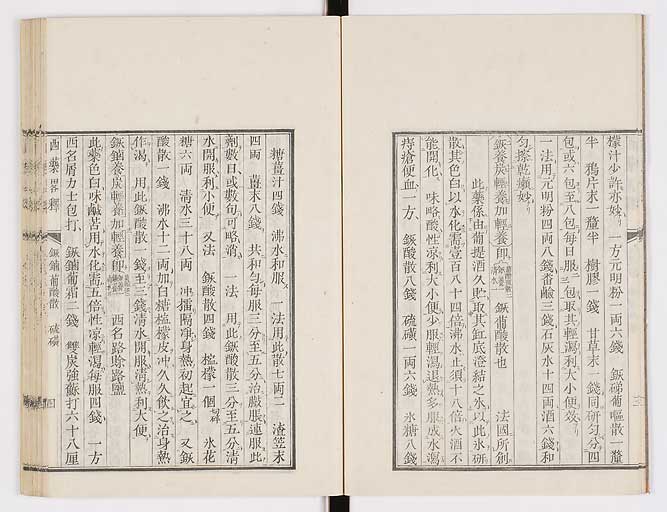 檬汁少許亦妙 一方元明粉一兩六錢 鈲銻葡嘔散一釐
半 鴉片末一釐半 樹膠一錢 甘草末一錢同研勻分四
包或六包至八包每日服三包取其輕瀉利大小便效
一法用元明粉四兩八錢番鹼三錢石灰水十四兩酒六錢和
勻搽乾癩妙
鈲養炭輕養加輕養即 鈲葡酸散也 法國所創
此藥係由葡提酒久貯取其缸底澄結之冰以此冰研
散其色白以水化需壹百八十四倍沸水止須十八倍火酒不
能開化 味略酸性涼利大小便少服輕瀉退熱多服成水瀉
痔瘡便血一方 鈲酸散八錢 硫磺一兩六錢 氷糖八錢
糖薑汁四錢 沸水和服 一法用此散七兩二 渣笠末
四兩 薑末八錢 共和勻每服三分至五分治臌脹連服此
劑數日或數旬可略消 一法 用此鈲酸散三分至五分清
水開服利小便 又法 鈲酸散四錢 檸檬一個 氷花
糖六兩 清水三十八兩 冲擂隔淨身熱初起宜之 又鈲
酸散一錢 沸水十二兩加白糖檸檬皮冲久久飲之治身熱
作渴 用此鈲酸散一錢至三錢清水開服清熱利大便
鈲鏀養炭輕養加輕養即 西名路唥路鹽
此藥色白味鹹苦用水化需五倍性涼輕瀉每服四錢 一方
西名屑力士包打 鈲鏀葡霜二錢 雙炭強蘇打六十八厘
西藥畧釋 鈲鏀葡酸散 硫磺 四